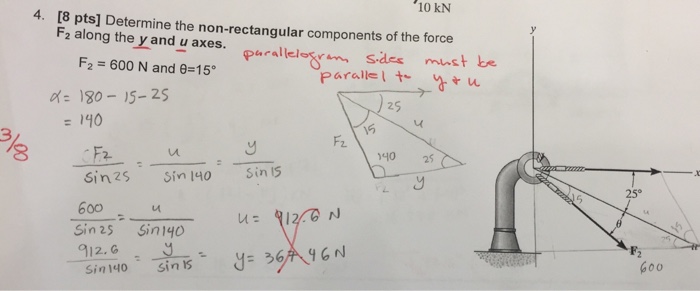 10 kN
4. [8 pts] Determine the non-rectangular components of the force
F₂ along the y and u axes.
parallelogram sides must be
parallel to y + u
F₂ = 600 N and θ=15°
α = 180 - 15 - 25
= 140
3/8
F₂/sin 25 = u/sin 140 = y/sin 15
600/sin 25 = u/sin 140
u = 912.6 N
912.6/sin 140 = y/sin 15 =
y = 367.46 N
25
15
u
F₂
140
25
y
F₂
y
x
25°
15
u
θ
F₂
600